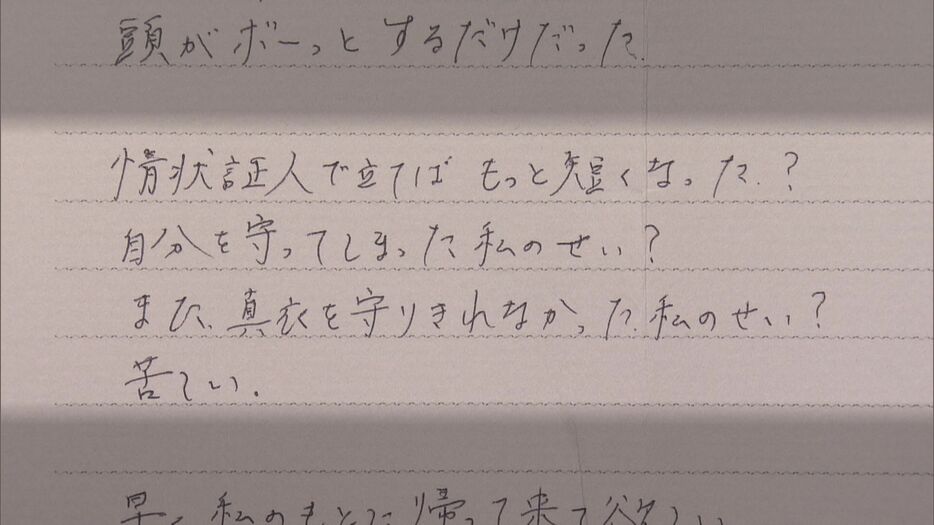 頭がボーっとするだけだった.
情状証人で立てば もっと短くなった.?
自分を守ってしまった私のせい?
また、真衣を守りきれなかった.私のせい?
苦しい.
早く私のもとに帰って来て欲しい